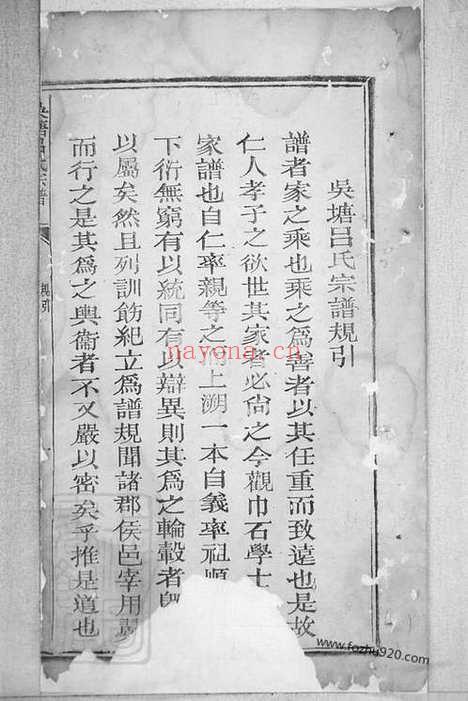 吳塘呂氏宗譜規引
譜者家之乘也乘之為善者以其任重而致遠也是故
仁人孝子之欲世其家者必尙之今觀巾石學士
家譜也自仁率親等之而上溯一本自義率祖順
下衍無窮有以統同有以辯異則其為之輪轂者
以屬矣然且列訓飭紀立為譜規聞諸郡侯邑宰用
而行之是其為之輿衞者不又嚴以密矣乎推是道也
呂氏宗譜
規引
nayona.cn
www.fozhu920.com